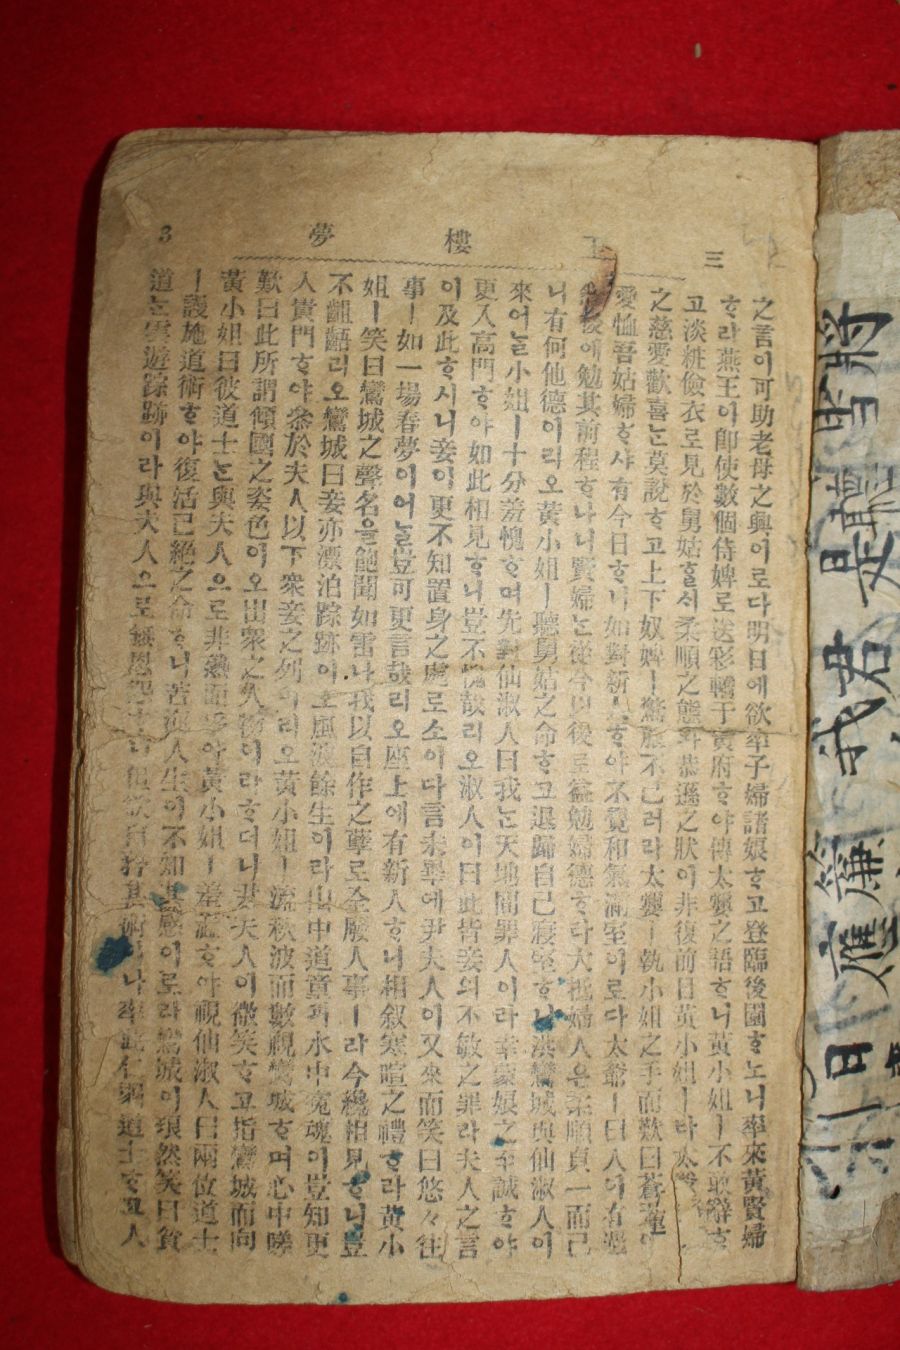 玉樓夢 三
3
之言이可助老母之興이로다明日에欲率子婦諸娘ᄒᆞ고登臨後園ᄒᆞ노니率來黃賢婦
ᄒᆞ라燕王이卽使數個侍婢로送彩轎于黃府ᄒᆞ야傳太䕒之語ᄒᆞ니黃小姐ㅣ不敢辭ᄒᆞ
고淡粧儉衣로見於舅姑ᄒᆞᆯᄉᆡ柔順之態와恭遜之狀이非復前日黃小姐ㅣ라
之慈愛歡喜ᄂᆞᆫ莫說ᄒᆞ고上下奴婢ㅣ驚不已러라太䕒ㅣ執小姐之手而歎曰蒼
愛恤吾姑婦ᄒᆞ샤有今日ᄒᆞ니如對新人ᄒᆞ야不覺和氣滿室이로다太爺ㅣ曰人이有過
後에勉其前程ᄒᆞ나니賢婦ᄂᆞᆫ從今以後로益勉婦德ᄒᆞ라大抵婦人은柔順貞一而已
니有何他德이리오黃小姐ㅣ聽舅姑之命ᄒᆞ고退歸自己寢室ᄒᆞ니洪鸞城與仙淑人이
來어ᄂᆞᆯ小姐ㅣ十分羞愧ᄒᆞ며先對仙淑人曰我ᄂᆞᆫ天地間罪人이라幸蒙娘之至誠ᄒᆞ야
更入高門ᄒᆞ야如此相見ᄒᆞ니豈不愧哉리오淑人이曰此皆妾의不敏之罪라夫人之言
이及此ᄒᆞ시니妾이更不知置身之處로소이다言未畢에尹夫人이又來而笑曰悠々往
事ㅣ如一場春夢이어ᄂᆞᆯ豈可更言哉리오座上에有新人ᄒᆞ니相叙寒暄之禮ᄒᆞ라黃小
姐ㅣ笑曰鸞城之聲名을飽聞如雷나我以自作之孽로全廢人事ㅣ라今纔相見ᄒᆞ니豈
不齟齬리오鸞城曰妾亦漂泊踪跡이오風波餘生이라山中道童과水中寃魂이豈知更
入貴門ᄒᆞ야叅於夫人以下衆妾之列이리오黃小姐ㅣ流秋波而數視鸞城ᄒᆞ며心中嗟
歎曰此所謂傾國之姿色이오出衆之人物이라ᄒᆞ더니尹夫人이微笑ᄒᆞ고指鸞城而向
黃小姐曰彼道士ᄂᆞᆫ與夫人으로非熟面乎아黃小姐ㅣ羞澁ᄒᆞ야視仙淑人曰兩位道士
ㅣ護施道術ᄒᆞ야復活已絶之命ᄒᆞ니苦海人生이不知其感이로라鸞城이琅然笑曰貧
道ᄂᆞᆫ雲遊踪跡이라與夫人으로無恩怨
將雪
是聽
我君
簾應
日